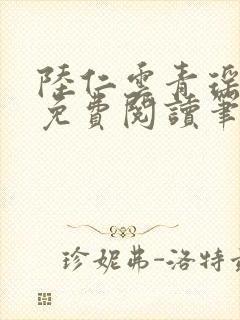 陸仁雲青瑶
免費閱讀筆
珍妮弗-洛特